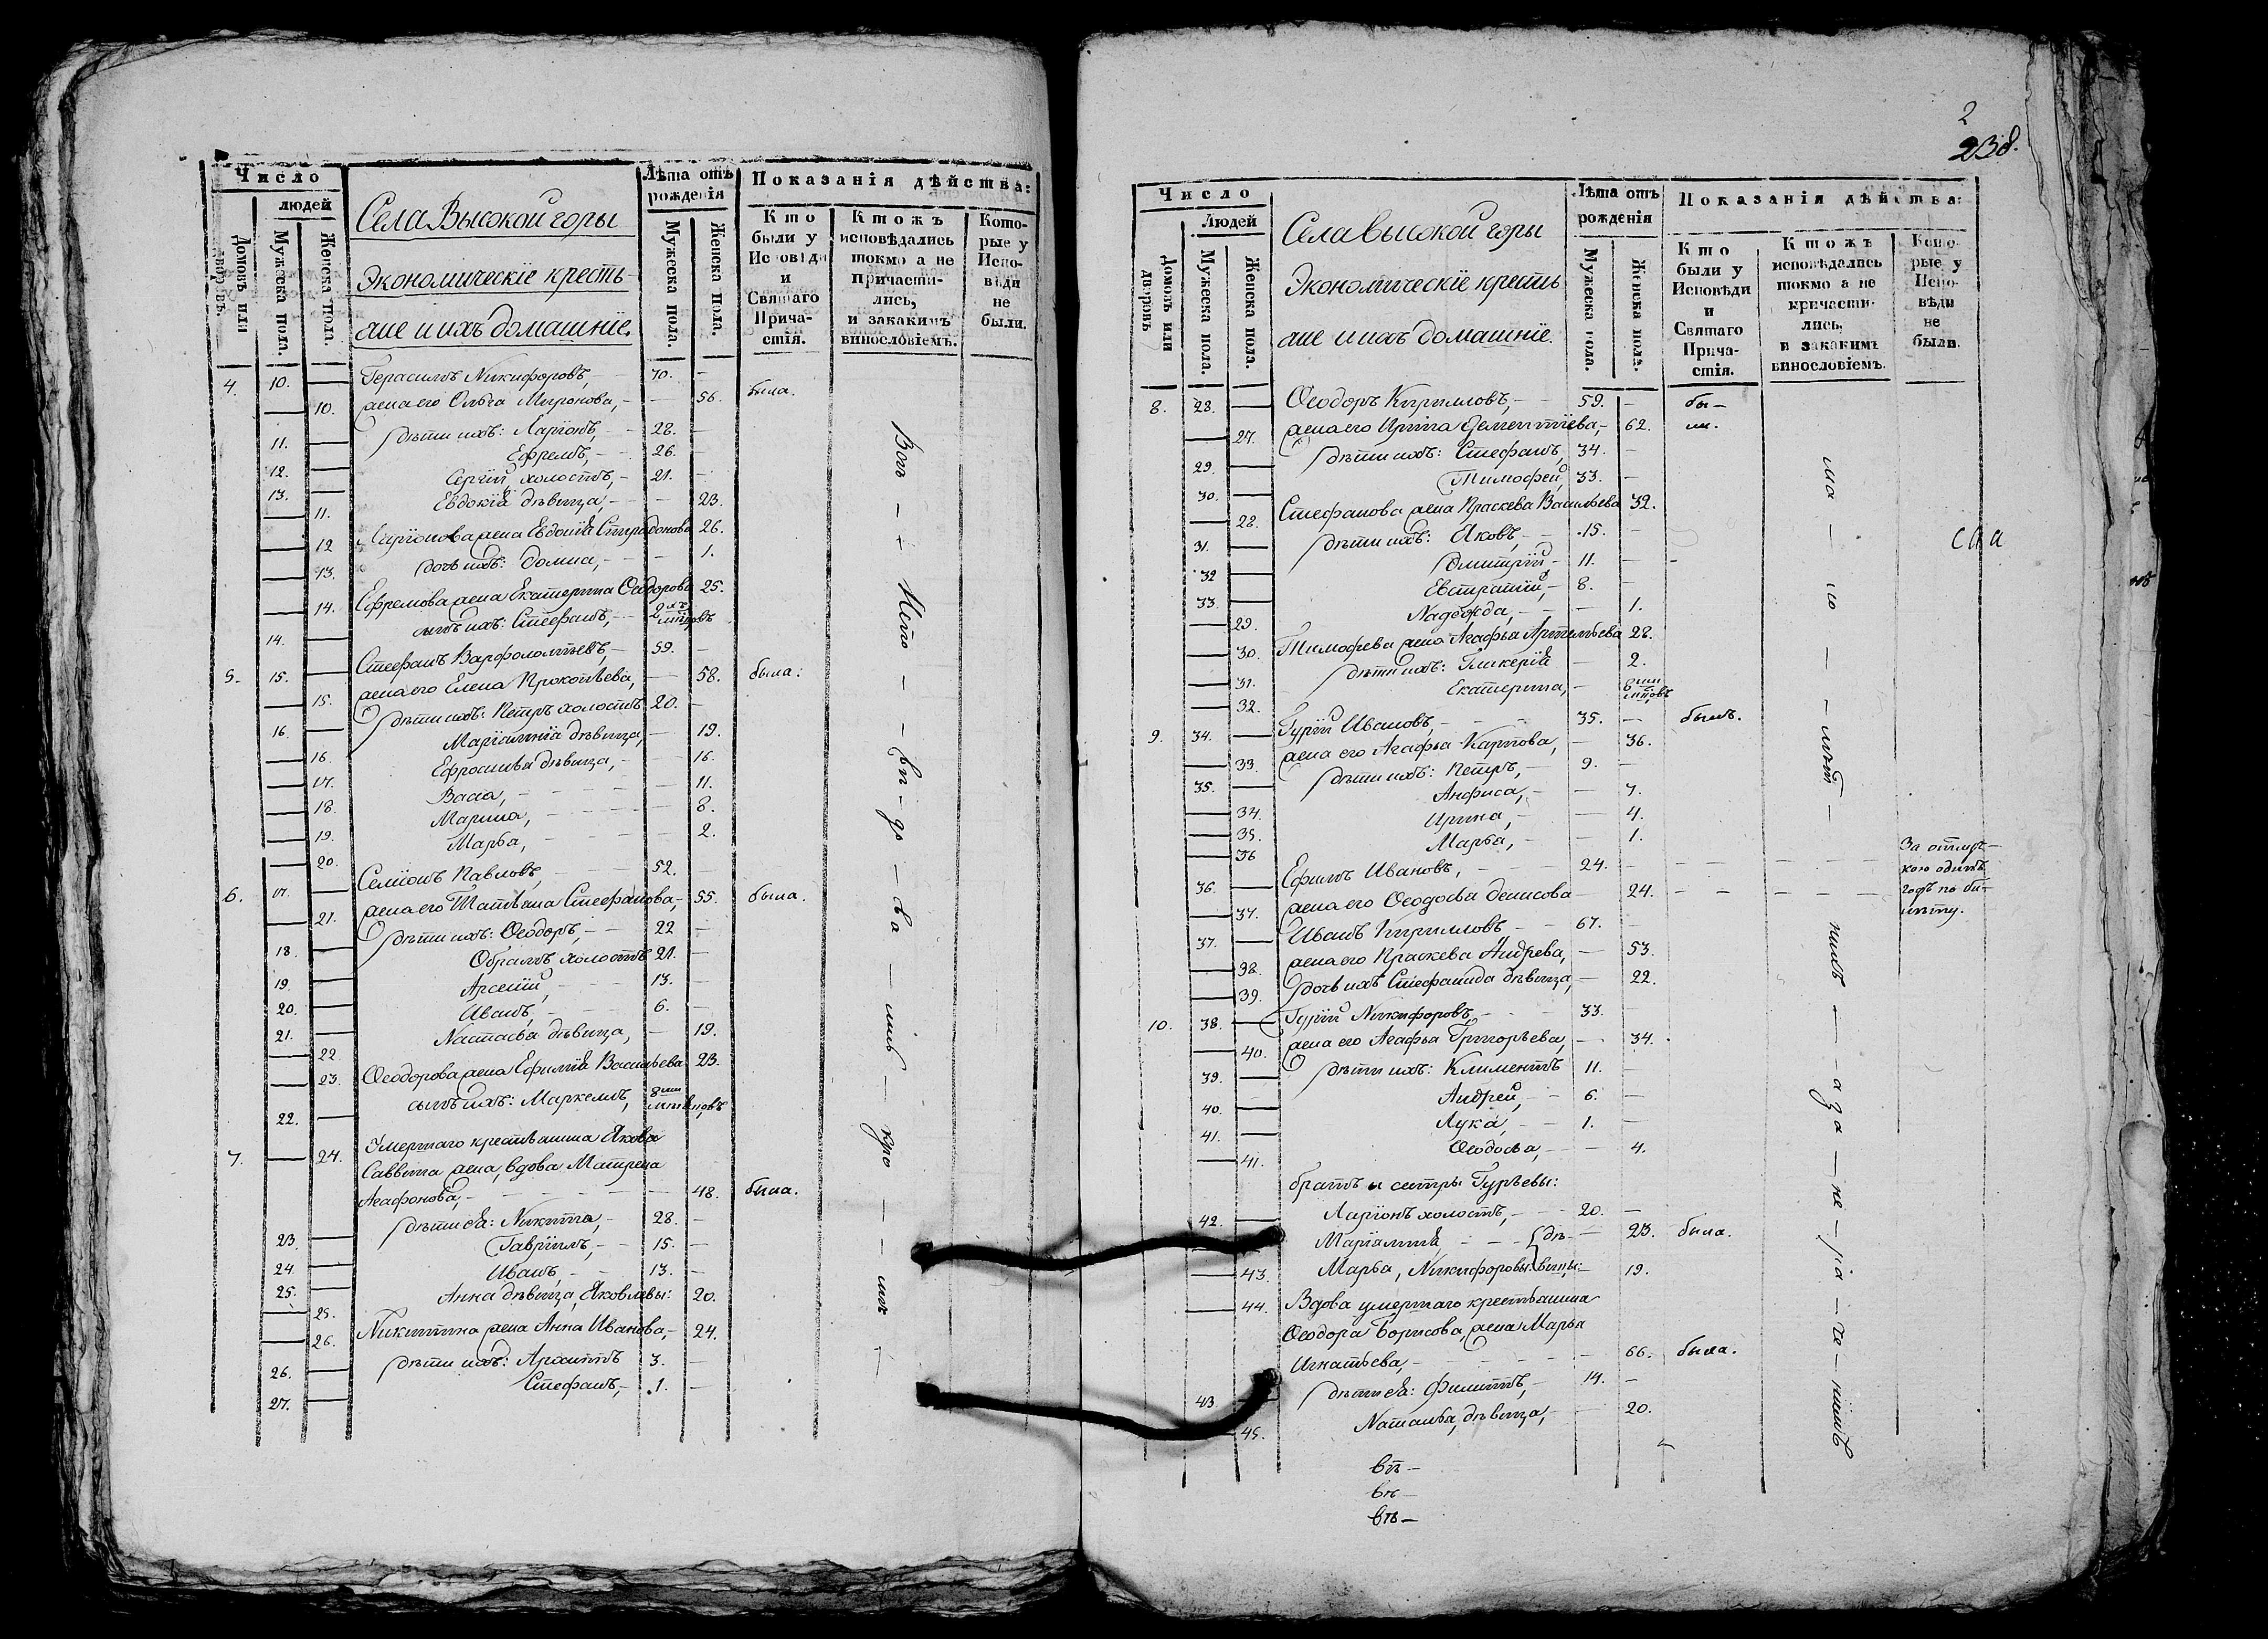 Число
людей
Домовъ или дворовъ.
Мужеска пола.
Женска пола.
Села Высокой горы
Экономическїе кресть-
яне и ихъ домашнїе.
Лѣта отъ
рожденія
Мужеска пола.
Женска пола.
Показанія дѣйства:
Кто
были у
Исповѣди
и
Святаго
Прича-
стія.
Ктожъ
исповѣдались
токмо а не
причасти-
лись,
и закакимъ
винословіемъ.
Кото-
рые у
Испо-
вѣди
не
были.
4. 10. Герасимъ Никифоровъ, 70.
10. жена его Ольга Миронова, 56. была.
11. дѣти ихъ: Ларїонъ, 28.
12. Ефремъ, 26.
13. Сергїй, холостъ, 21.
11. Евдокїя дѣвица, 23.
12 Ларїонова жена Евдокїя Спиридонова 26.
13. дочь ихъ: Домна, 1.
14. Ефремова жена Екатерина Ѳеодорова 25.
14. сынъ ихъ: Стефанъ, 2хъ
5. 15. Стефанъ Варфоломѣевъ, 59.
15. жена его Елена Прокопьева, 58. была:
16. дѣти ихъ: Петръ холостъ 20.
16. Марїамнїа дѣвица, 19.
17. Ефросинья дѣвица, 16.
18. Васса, 11.
19. Марина, 8.
20. Марѳа, 2.
6. 17. Семїонъ Павловъ, 52.
21. жена его Татьяна Стефанова, 55. была.
18. дѣти ихъ: Ѳеодоръ, 22
19. холостъ 21.
20. Арсенїй, 13.
21. Иванъ, 6.
22. Настасья дѣвица, 19.
23. Ѳеодорова жена Ефимїя Васильева 23.
22. сынъ ихъ: Маркелъ, 8ми
7. 24. Умершаго крестьянина Якова
Саввина жена, вдова Матрена
Агафонова, 48. была.
23. дѣти ея: Никита, 28.
24. Гаврїилъ, 15.
25. Иванъ, 13.
25. Анна дѣвица, Яковлевы: 20.
26. Никитина жена Анна Иванова, 24.
26. дѣти ихъ: 3.
27. Стефанъ, 1.
2
238.
Число
Людей
Домовъ или дворовъ
Мужеска пола.
Женска пола.
Села высокой горы
Экономическїе кресть
яне и ихъ домашнїе.
Лѣта отъ
рожденія
Мужеска пола.
Женска пола.
Показанія дѣйства:
Кто
были у
Исповѣди
и
Святаго
Прича-
стія.
Ктожъ
исповѣдались
токмо а не
причасти-
лись,
и закакимъ
винословіемъ.
Кото-
рые у
Испо-
вѣди
не
были.
8. 28. Ѳеодоръ Кирилловъ, 59. бы-
27. жена его Ирина Дементїева, 62. ли.
29. дѣти ихъ: Стефанъ, 34.
30. Тимофей, 33.
28. Стефанова жена Праскева Васильева 32.
31. дѣти ихъ: Яковъ, 15.
32 Дмитрїй 11.
33. Евстратїй, 8.
29. Надежда, 1.
30. Тимофеева жена Агафья Артемьева 28.
31. дѣти ихъ: Гликерїя 2.
32. Екатерина, 8ми
9. 34. Гурїй Ивановъ, 35. былъ.
33. жена его Агафья Карпова, 36.
35. дѣти ихъ: Петръ, 9.
34. Анфиса, 7.
35. Ирина, 4.
36 Марѳа, 1.
36. Ефимъ Ивановъ, 24. За отлуч-
кою одинъ
37. жена его Ѳеодосья Денисова 24. годъ по би-
лѣту.
37. Иванъ Кирилловъ 67.
38. жена его Праскева Андрева, 53.
39. дочь ихъ Стефанида дѣвица, 22.
10. 38. Гурїй Никифоровъ, 33.
40. жена его Агафья Григорьева, 34.
39. дѣти ихъ: Климентъ 11.
40. Андрей, 6.
41. Лука, 1.
41. Ѳеодосья, 4.
братъ и сестры Гурьевы:
42. Ларїонъ холостъ, 20.
Марїамнїя, дѣ- 23. была.
43. Марѳа, Никифоровы вицы: 19.
44. Вдова умершаго крестьянина
Ѳеодора Борисова, жена Марья
Игнатьева, 66. была.
43 дѣти ея: Филиппъ, 14.
45. Наталья, дѣвица, 20.